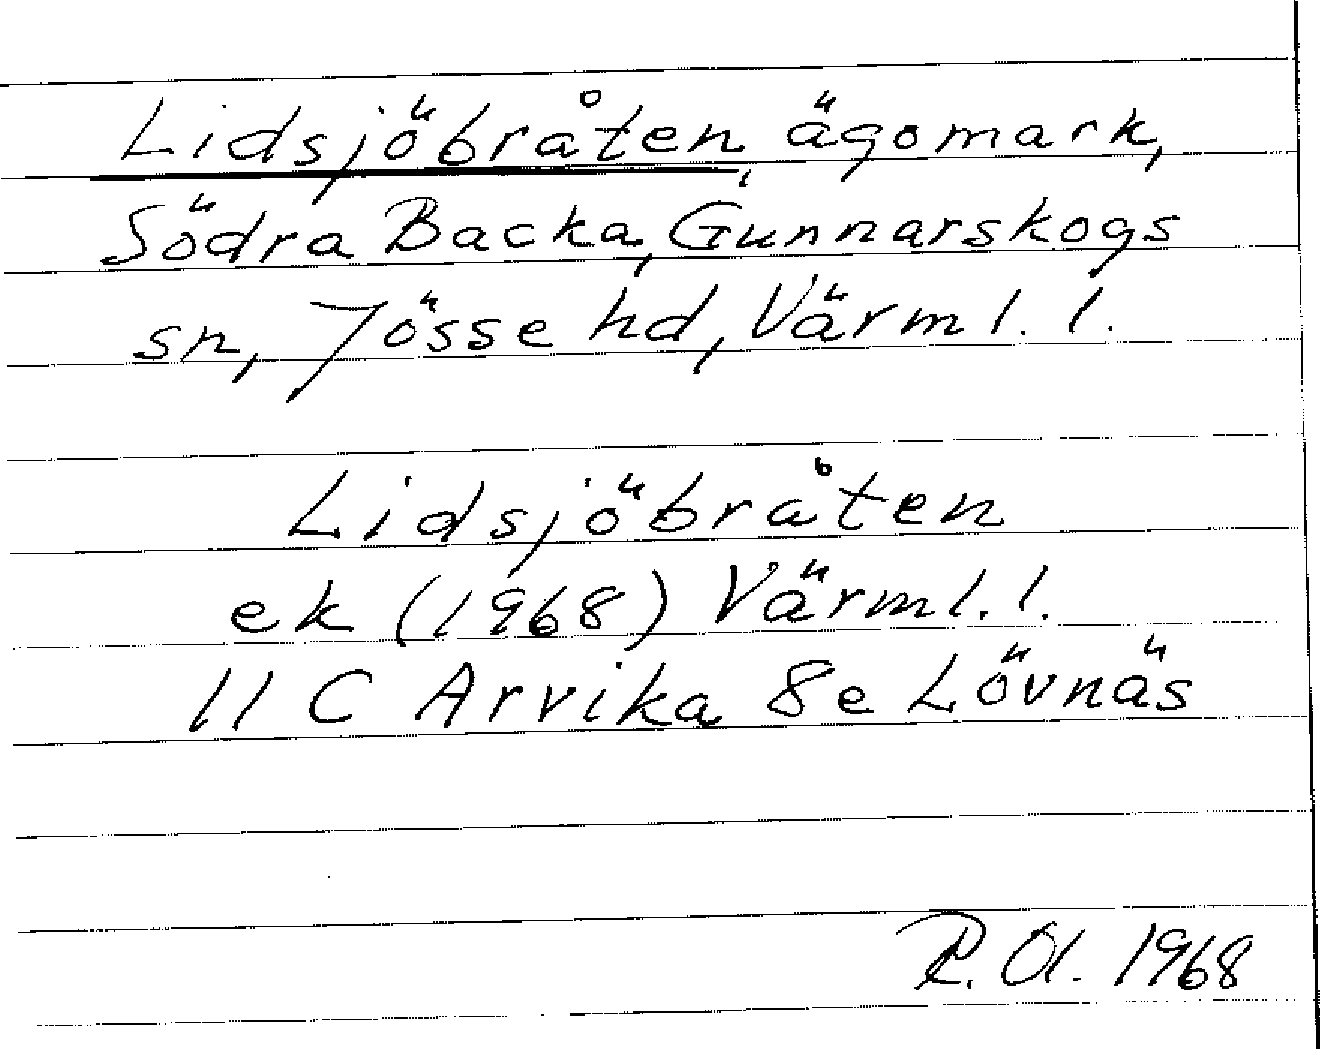 Lidsjöbråten, ägomark,
Södra Backa, Gunnarskogs
sn, Jösse hd, Värml. l.
Lidsjöbråten
ek (1968) Värml. l.
11 C Arvika 8e Lövnäs
R. Ol. 1968